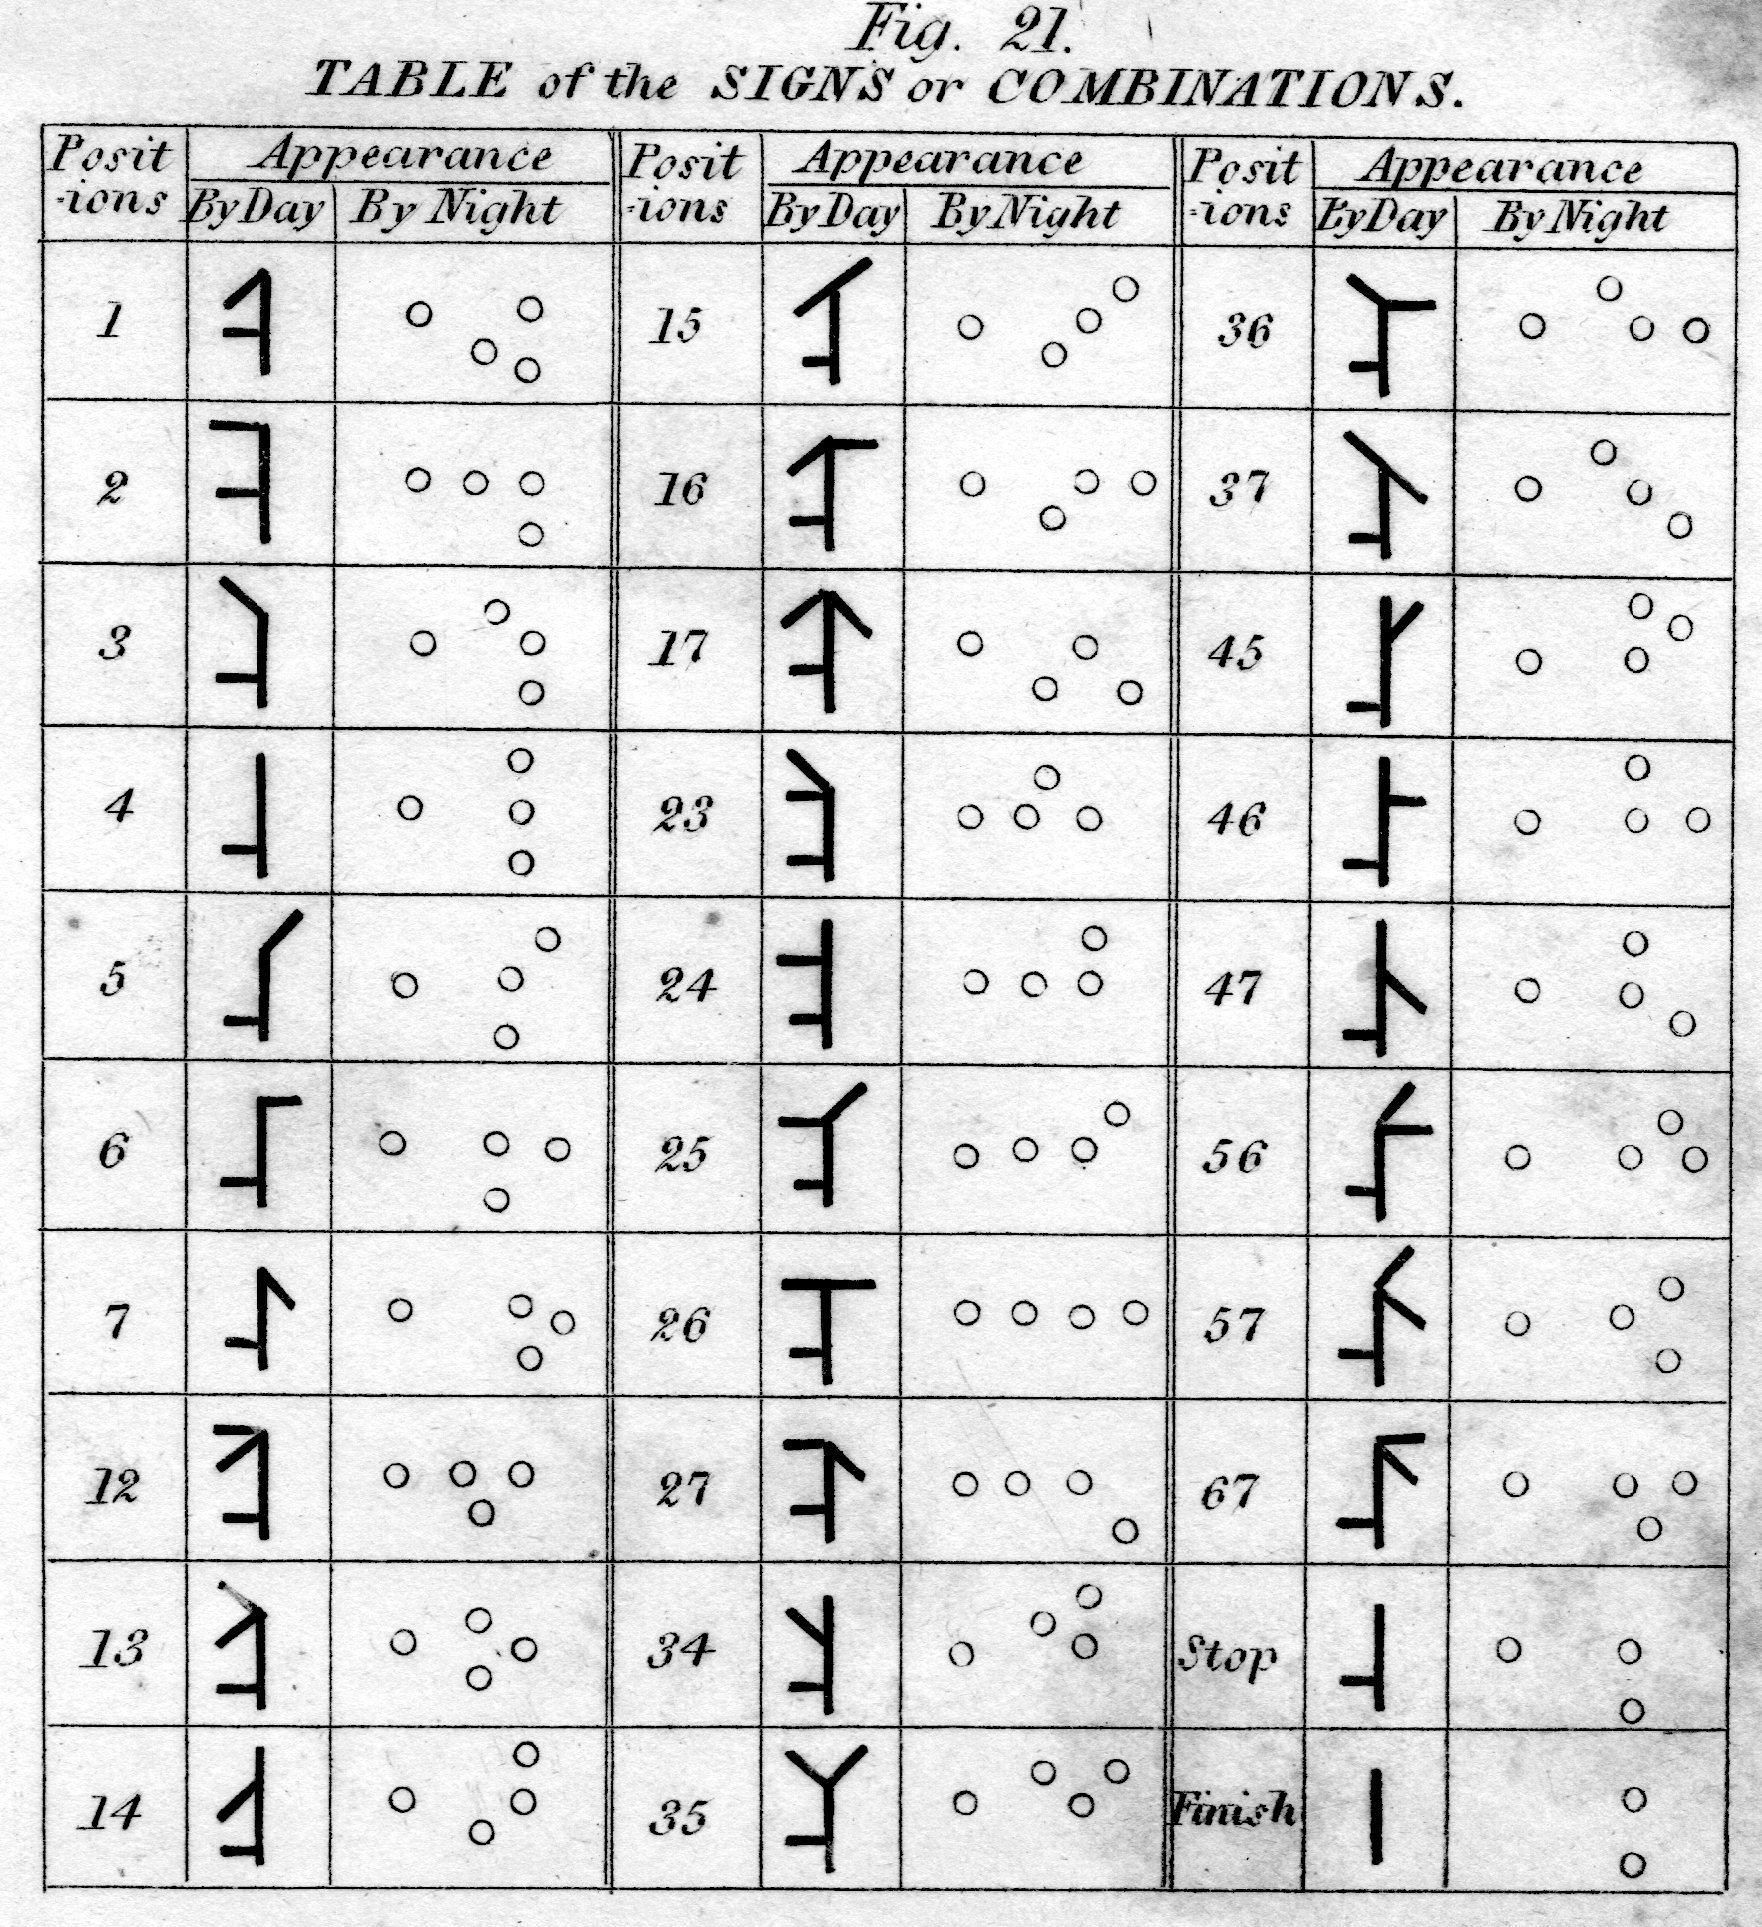 Fig. 21.
TABLE of the SIGNS or COMBINATIONS.
Posit Appearance Posit Appearance Posit Appearance
-ions By Day By Night -ions By Day By Night -ions By Day By Night
1 15 36
2 16 37
3 17 45
4 23 46
5 24 47
6 25 56
7 26 57
12 27 67
13 34 Stop
14 35 Finish